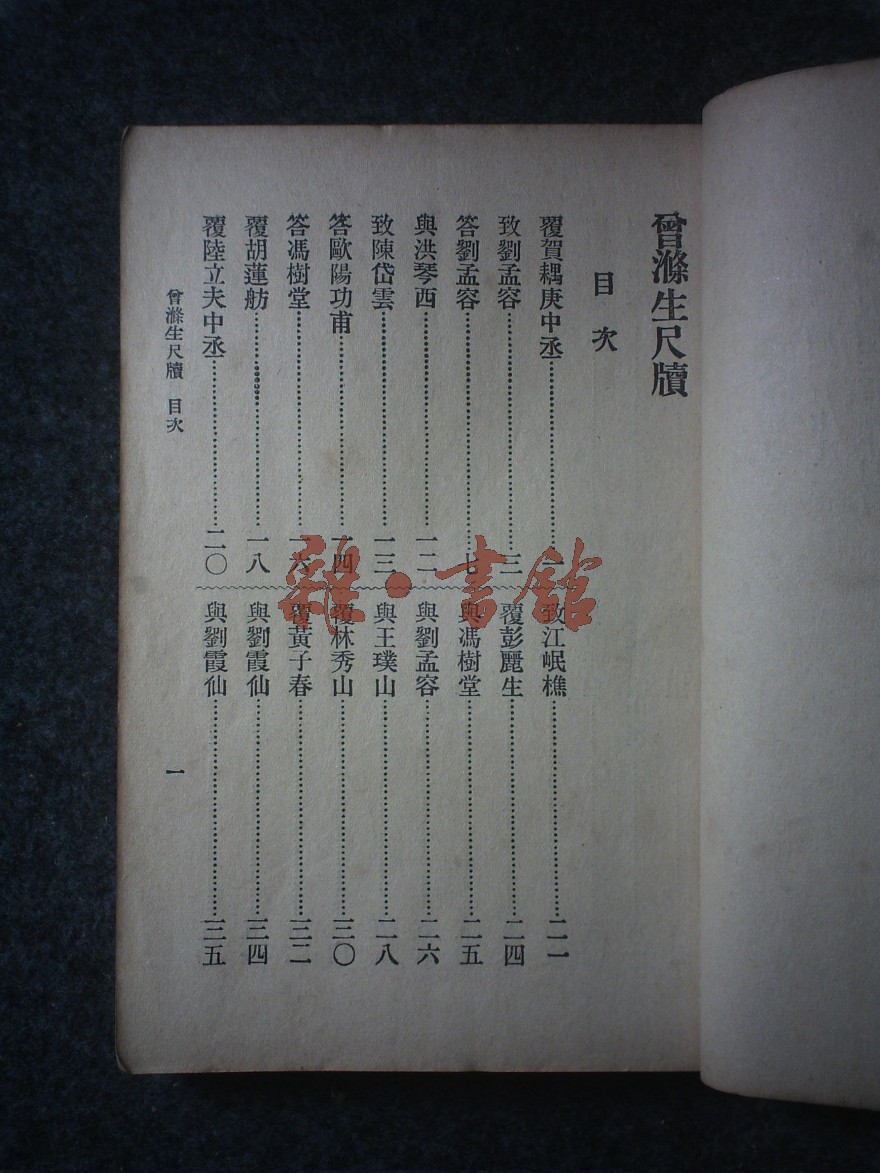 曾滌生尺牘
目次
覆賀耦庚中丞…………一
致劉孟容…………三
答劉孟容…………七
與洪琴西…………一二
致陳岱雲…………一三
答歐陽功甫…………一四
答馮樹堂…………一六
覆胡蓮舫…………一八
覆陸立夫中丞…………二〇
致江岷樵…………二一
覆彭麗生…………二四
與馮樹堂…………二五
與劉孟容…………二六
與王璞山…………二八
覆林秀山…………三〇
覆黃子春…………三二
與劉霞仙…………三四
與劉霞仙…………三五
曾滌生尺牘 目次
一
雜·書館